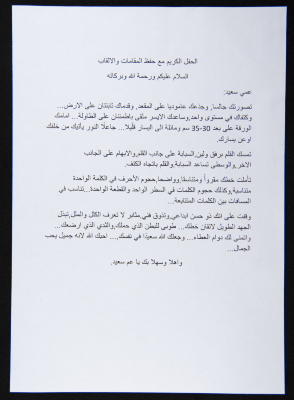 الحفل الكريم مع حفظ المقامات والالقاب
السلام عليكم ورحمة الله وبركاته
عمي سعيد:
تصورتك جالسا, وجذعك عاموديا على المقعد, وقدماك ثابتتان على الارض...
وكتفاك في مستوى واحد,وساعدك الايسر ملقى باطمئنان على الطاولة... امامك
الورقة على بعد 30-35 سم ومائلة الى اليسار قليلا... جاعلاً النور يأتيك من خلفك
اوعن يسارك.
تمسك القلم برفق ولين,السبابة على جانب القلم,والابهام على الجانب
الاخر,والوسطى تساعد السبابة,والقلم باتجاه الكتف.
تأملت خطك مقروأ ومتناسقا,وواضحا,حجوم الأحرف في الكلمة الواحدة
متناسبة,وكذلك حجوم الكلمات في السطر الواحد والقطعة الواحدة...تناسب في
المسافات بين الكلمات المتتابعة...
وقفت على انك ذو حس ابداعي,وتذوق فني,مثابر لا تعرف الكلل والملل,تبذل
الجهد الطويل لاتقان خطك... طوبى للبطن الذي حملك,والثدي الذي ارضعك...
واتمنى لك دوام العطاء... وجعلك الله سعيدًا في نفسك.... احبك الله لانه جميل يحب
الجمال...
واهلا وسهلا بك يا عم سعيد.